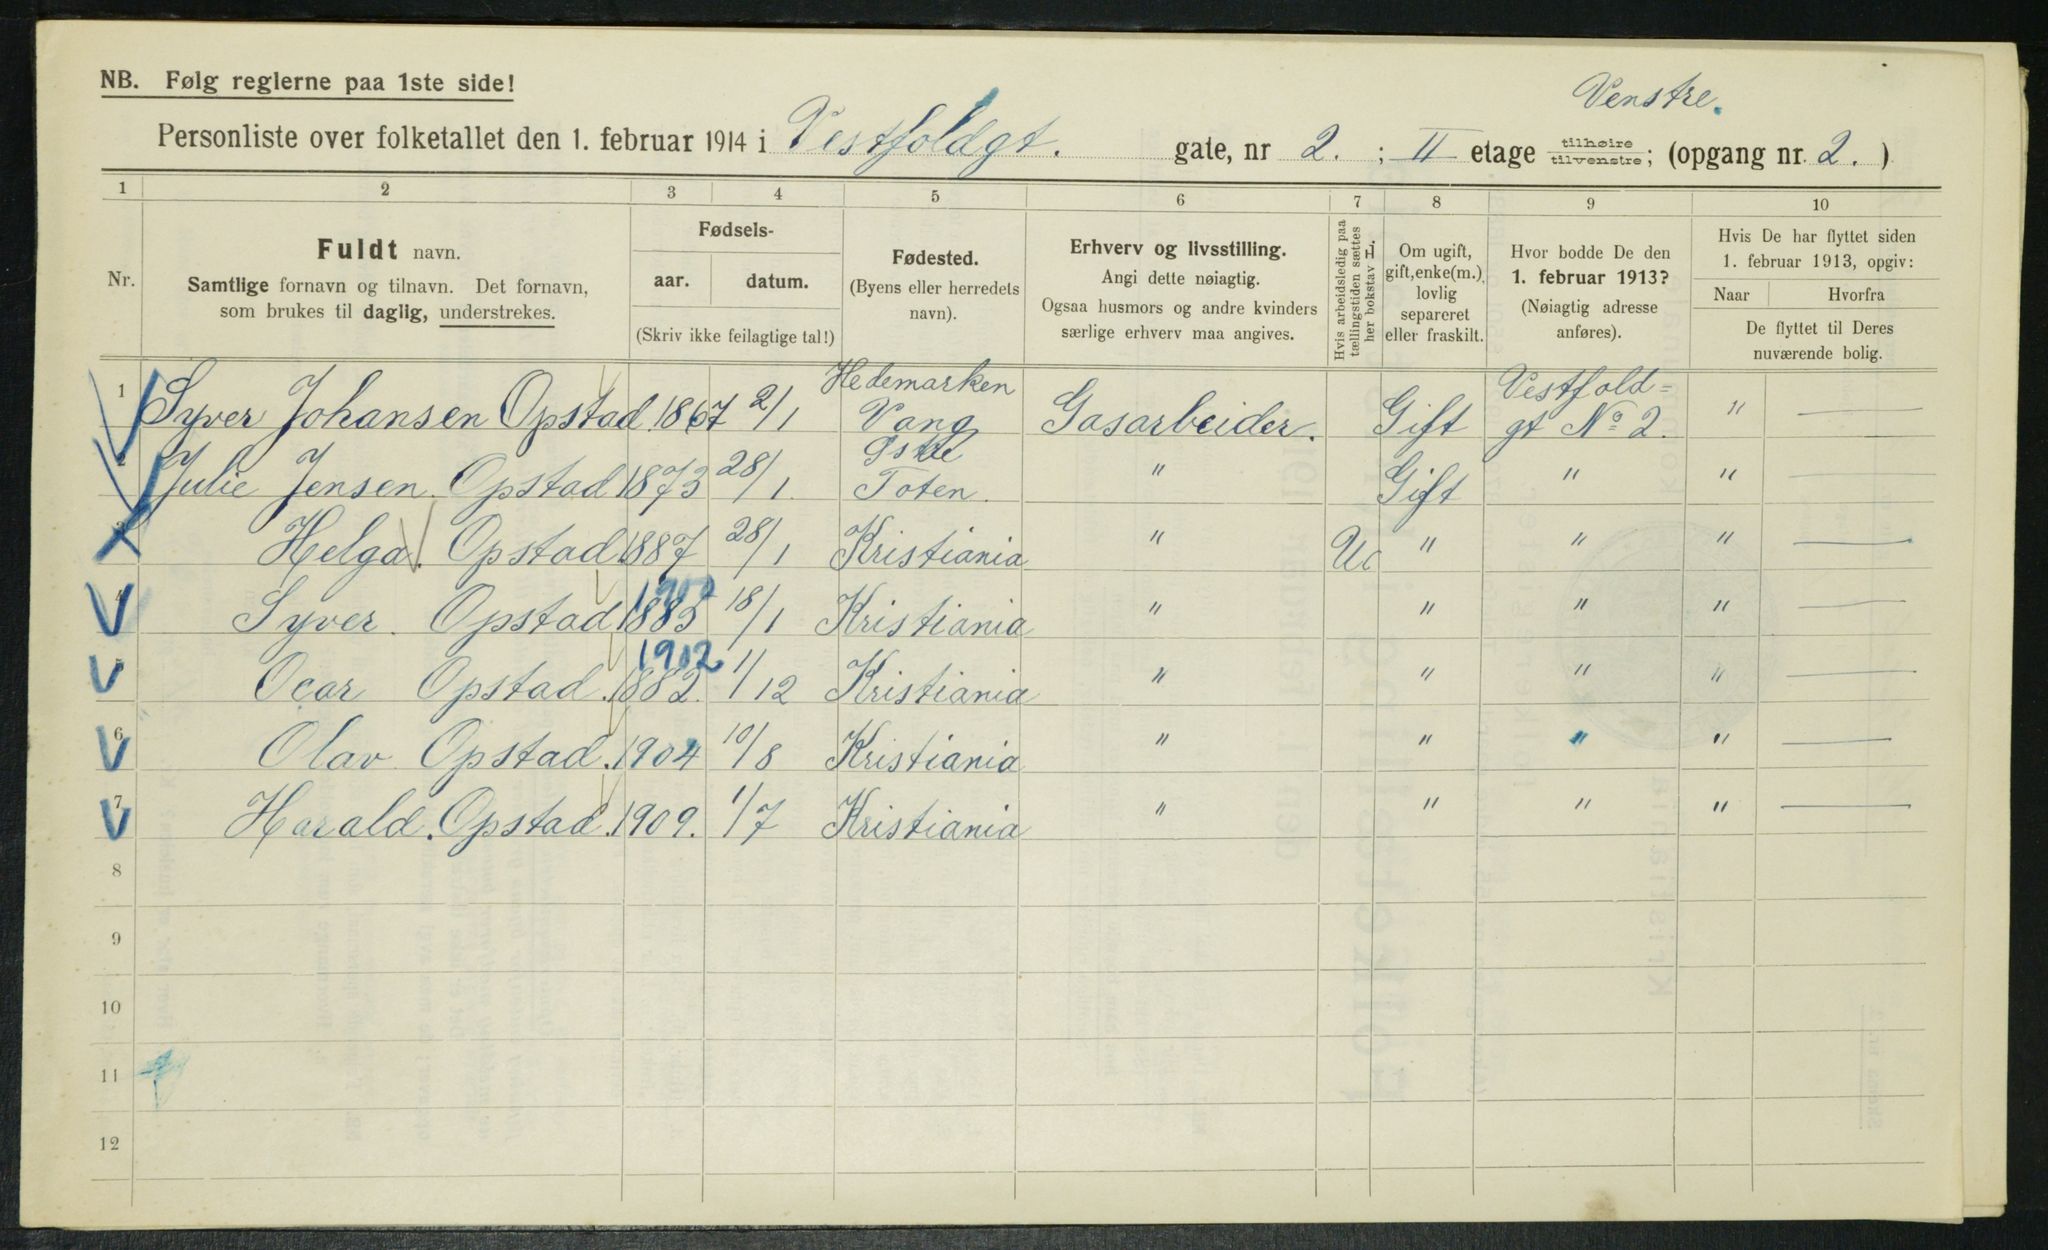 NB. Følg reglerne paa 1ste side!
Venstre.
Personliste over folketallet den 1. februar 1914 i Vestfoldgt. gate, nr 2. ; II etage tilhøire tilvenstre; (opgang nr. 2. )
1 2 3 4 5 6 7 8 9 10
Nr.
Fuldt navn.
Samtlige fornavn og tilnavn. Det fornavn,
som brukes til daglig, understrekes.
Fødsels-
aar. datum.
(Skriv ikke feilagtige tal!)
Fødested.
(Byens eller herredets
navn).
Erhverv og livsstilling.
Angi dette nøiagtig.
Ogsaa husmors og andre kvinders
særlige erhverv maa angives.
Hvis arbeidsledig paa
tællingstiden sættes
her bokstav L.
Om ugift,
gift, enke(m.),
lovlig
separeret
eller fraskilt.
Hvor bodde De den
1. februar 1913?
(Nøiagtig adresse
anføres).
Hvis De har flyttet siden
1. februar 1913, opgiv:
Naar Hvorfra
De flyttet til Deres
nuværende bolig.
Hedemarken Vestfold=
1 Syver Johansen Opstad 1867 2/1 Vang Gasarbeider. Gift gt No 2. "
Østre
2 Julie Jensen. Opstad 1873 28/1 Toten. " Gift " "
3 Helga. Opstad 1887 28/1 Kristiania " " " "
1900
4 Syver. Opstad 1883 18/1 Kristiania " " " "
1902
5 Ocar Opstad. 1882. 1/12 Kristiania " " " "
6 Olav Opstad. 1904 10/8 Kristiania " " " "
7 Harald. Opstad. 1909. 1/7 Kristiania " " " "
8
9
10
11
12